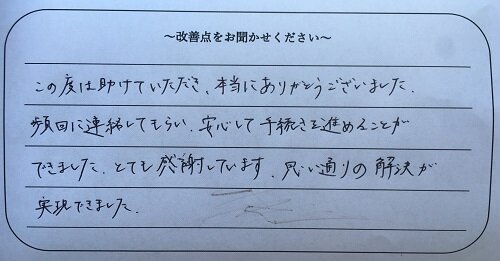 ～改善点をお聞かせください～
この度は助けていただき、本当にありがとうございました.
頻回に連絡してもらい、安心して手続きを進めることが
できました. とても感謝しています. 思い通りの解決が
実現できました.